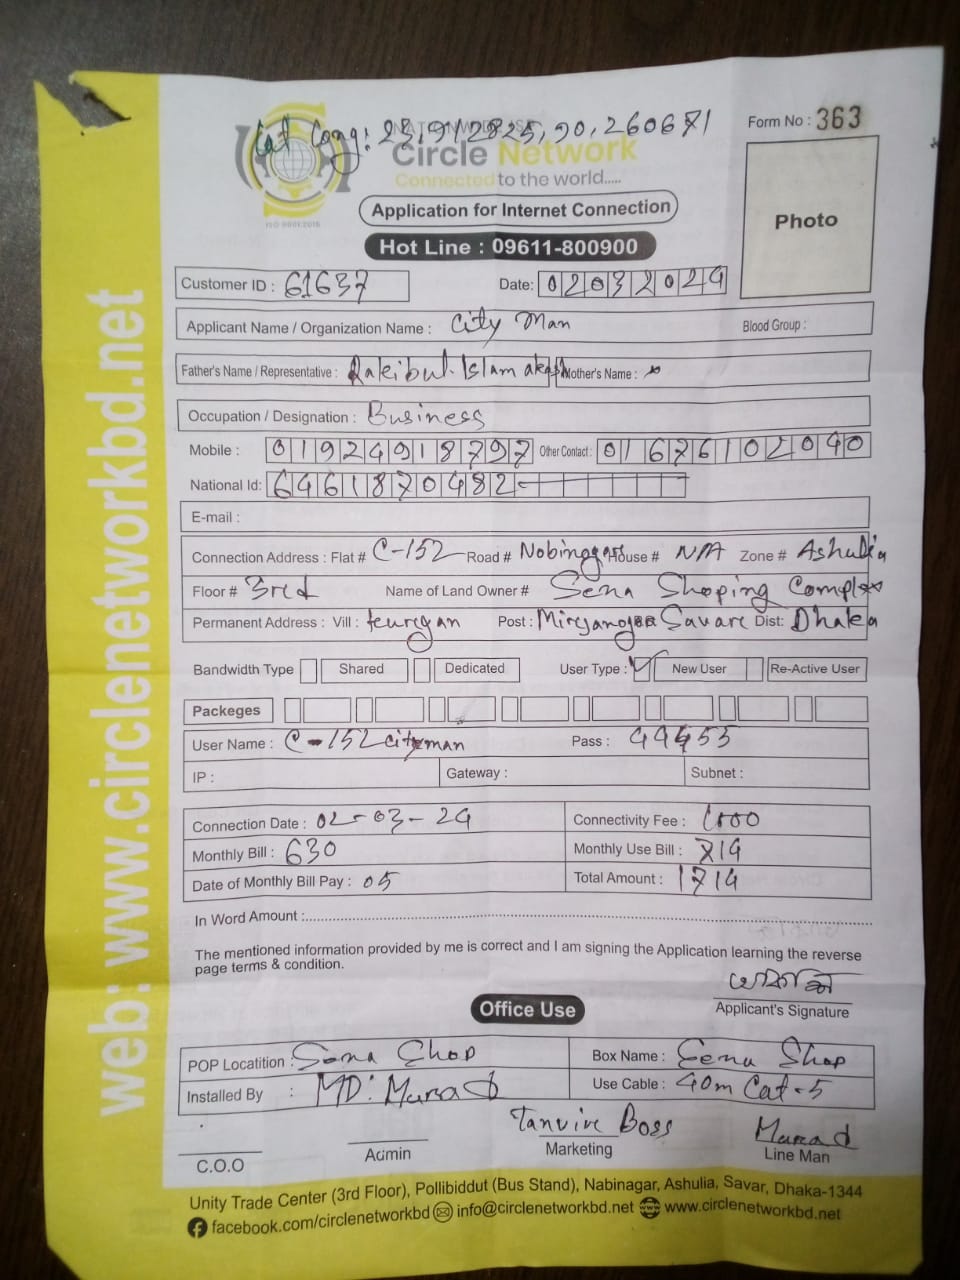 web: www.circlenetworkbd.net
NATIONWIDE ISP
Circle Network
Connected to the world.....
ISO 9001:2015
Form No : 363
Application for Internet Connection
Photo
Hot Line : 09611-800900
Customer ID : 61637 Date: 02032024
Applicant Name / Organization Name : City Man Blood Group :
Father's Name / Representative : Rakibul Islam akash Mother's Name : x
Occupation / Designation : Business
Mobile : 01924918797 Other Contact : 01676102040
National Id: 6461870482-
E-mail :
Connection Address : Flat # C-152 Road # Nobinagar House # N/A Zone # Ashulia
Floor # 3rd Name of Land Owner # Sena Shoping Complex
Permanent Address : Vill : Post : Savar Dist: Dhaka
Bandwidth Type Shared Dedicated User Type : New User Re-Active User
Packeges
User Name : C-152cityman Pass : 44455
IP : Gateway : Subnet :
Connection Date : 02-03-24 Connectivity Fee : 1000
Monthly Bill : 630 Monthly Use Bill : 714
Date of Monthly Bill Pay : 05 Total Amount : 1714
In Word Amount :
The mentioned information provided by me is correct and I am signing the Application learning the reverse
page terms & condition.
Applicant's Signature
Office Use
POP Locatition : Sena Shop Box Name : Sena Shop
Installed By : MD: Murad Use Cable : 40m Cat-5
Tanvire Boss Murad
C.O.O Admin Marketing Line Man
Unity Trade Center (3rd Floor), Pollibiddut (Bus Stand), Nabinagar, Ashulia, Savar, Dhaka-1344
facebook.com/circlenetworkbd info@circlenetworkbd.net www.circlenetworkbd.net